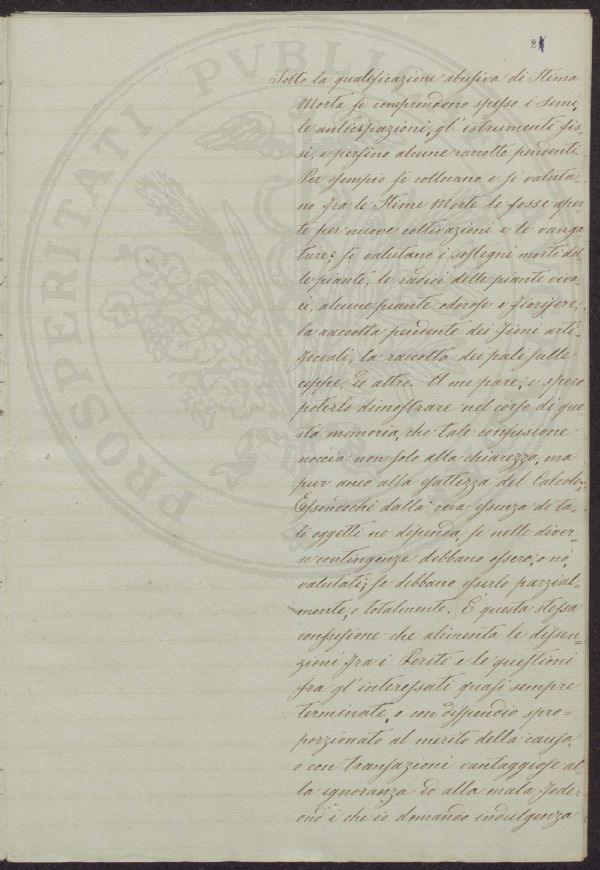 21
Sotto la qualificazione abusiva di Stima
Morta si comprendono spesso i semi,
le anticipazioni, gl'istrumenti fis=
si, e persino alcune raccolte pendenti.
Per esempio si collocano e si valuta=
no fra le Stime Morte le fosse aper=
te per nuove coltivazioni e le vanga
ture; si valutano i sostegni morti del
le piante, le radici delle piante viva=
ci, alcune piante odorose e fiorifere,
la raccolta pendente dei fieni arti=
ficiali, la raccolta dei pali sulle
ceppe, ed altro. A me pare, e spero
poterlo dimostrare nel corso di que
sta memoria, che tale confusione
noccia non solo alla chiarezza, ma
pur anco alla esattezza del Calcolo.
Essendochè dalla vera essenza di ta=
li oggetti ne dipenda, se nelle diver=
se contingenze debbano essere, o nò,
valutati; se debbano esserlo parzial=
mente, o totalmente. È questa stessa
confusione che alimenta le dissen=
zioni fra i Periti e le questioni
fra gl'interessati quasi sempre
terminate, o con dispendio spro=
porzionato al merito della causa,
o con transazioni vantaggiose al=
la ignoranza ed alla mala fede:
ond'è che io domando indulgenza
PROSPERITATI PVBLIC